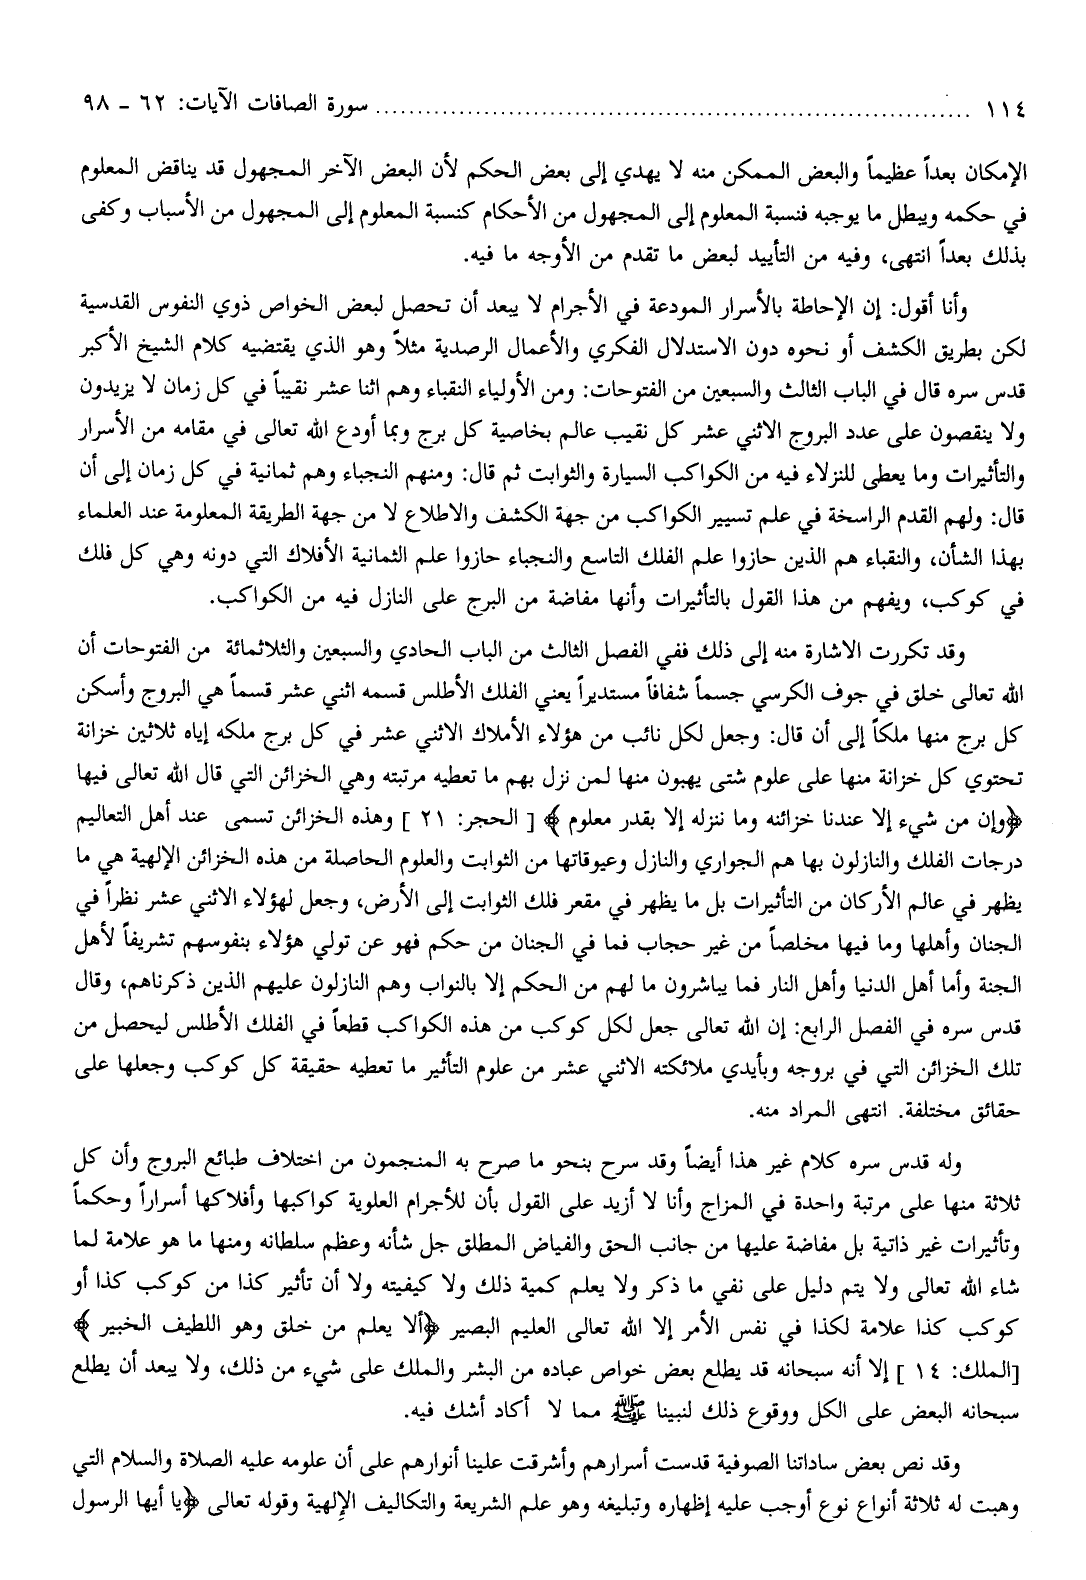 ١١٤ ........................................................................ سورة الصافات الآيات: ٦٢ ـ ٩٨
الإمكان بعداً عظيماً والبعض الممكن منه لا يهدي إلى بعض الحكم لأن البعض الآخر المجهول قد يناقض المعلوم
في حكمه ويبطل ما يوجبه فنسبة المعلوم إلى المجهول من الأحكام كنسبة المعلوم إلى المجهول من الأسباب وكفى
بذلك بعداً انتهى، وفيه من التأييد لبعض ما تقدم من الأوجه ما فيه.
وأنا أقول: إن الإحاطة بالأسرار المودعة في الأجرام لا يبعد أن تحصل لبعض الخواص ذوي النفوس القدسية
لكن بطريق الكشف أو نحوه دون الاستدلال الفكري والأعمال الرصدية مثلاً وهو الذي يقتضيه كلام الشيخ الأكبر
قدس سره قال في الباب الثالث والسبعين من الفتوحات: ومن الأولياء النقباء وهم اثنا عشر نقيباً في كل زمان لا يزيدون
ولا ينقصون على عدد البروج الاثني عشر كل نقيب عالم بخاصية كل برج وبما أودع الله تعالى في مقامه من الأسرار
والتأثيرات وما يعطى للنزلاء فيه من الكواكب السيارة والثوابت ثم قال: ومنهم النجباء وهم ثمانية في كل زمان إلى أن
قال: ولهم القدم الراسخة في علم تسيير الكواكب من جهة الكشف والاطلاع لا من جهة الطريقة المعلومة عند العلماء
بهذا الشأن، والنقباء هم الذين حازوا علم الفلك التاسع والنجباء حازوا علم الثمانية الأفلاك التي دونه وهي كل فلك
في كوكب، ويفهم من هذا القول بالتأثيرات وأنها مفاضة من البرج على النازل فيه من الكواكب.
وقد تكررت الاشارة منه إلى ذلك ففي الفصل الثالث من الباب الحادي والسبعين والثلاثمائة من الفتوحات أن
الله تعالى خلق في جوف الكرسي جسماً شفافاً مستديراً يعني الفلك الأطلس قسمه اثني عشر قسماً هي البروج وأسكن
كل برج منها ملكاً إلى أن قال: وجعل لكل نائب من هؤلاء الأملاك الاثني عشر في كل برج ملكه إياه ثلاثين خزانة
تحتوي كل خزانة منها على علوم شتى يهبون منها لمن نزل بهم ما تعطيه مرتبته وهي الخزائن التي قال الله تعالى فيها
﴿وإن من شيء إلا عندنا خزائنه وما ننزله إلا بقدر معلوم﴾ [ الحجر: ٢١ ] وهذه الخزائن تسمى عند أهل التعاليم
درجات الفلك والنازلون بها هم الجواري والنازل وعيوقاتها من الثوابت والعلوم الحاصلة من هذه الخزائن الإلهية هي ما
يظهر في عالم الأركان من التأثيرات بل ما يظهر في مقعر فلك الثوابت إلى الأرض، وجعل لهؤلاء الاثني عشر نظراً في
الجنان وأهلها وما فيها مخلصاً من غير حجاب فما في الجنان من حكم فهو عن تولي هؤلاء بنفوسهم تشريفاً لأهل
الجنة وأما أهل الدنيا وأهل النار فما يباشرون ما لهم من الحكم إلا بالنواب وهم النازلون عليهم الذين ذكرناهم، وقال
قدس سره في الفصل الرابع: إن الله تعالى جعل لكل كوكب من هذه الكواكب قطعاً في الفلك الأطلس ليحصل من
تلك الخزائن التي في بروجه وبأيدي ملائكته الاثني عشر من علوم التأثير ما تعطيه حقيقة كل كوكب وجعلها على
حقائق مختلفة. انتهى المراد منه.
وله قدس سره كلام غير هذا أيضاً وقد سرح بنحو ما صرح به المنجمون من اختلاف طبائع البروج وأن كل
ثلاثة منها على مرتبة واحدة في المزاج وأنا لا أزيد على القول بأن للأجرام العلوية كواكبها وأفلاكها أسراراً وحكماً
وتأثيرات غير ذاتية بل مفاضة عليها من جانب الحق والفياض المطلق جل شأنه وعظم سلطانه ومنها ما هو علامة لما
شاء الله تعالى ولا يتم دليل على نفي ما ذكر ولا يعلم كمية ذلك ولا كيفيته ولا أن تأثير كذا من كوكب كذا أو
كوكب كذا علامة لكذا في نفس الأمر إلا الله تعالى العليم البصير ﴿ألا يعلم من خلق وهو اللطيف الخبير﴾
[الملك: ١٤ ] إلا أنه سبحانه قد يطلع بعض خواص عباده من البشر والملك على شيء من ذلك، ولا يبعد أن يطلع
سبحانه البعض على الكل ووقوع ذلك لنبينا ﷺ مما لا أكاد أشك فيه.
وقد نص بعض ساداتنا الصوفية قدست أسرارهم وأشرقت علينا أنوارهم على أن علومه عليه الصلاة والسلام التي
وهبت له ثلاثة أنواع نوع أوجب عليه إظهاره وتبليغه وهو علم الشريعة والتكاليف الإلهية وقوله تعالى ﴿يا أيها الرسول